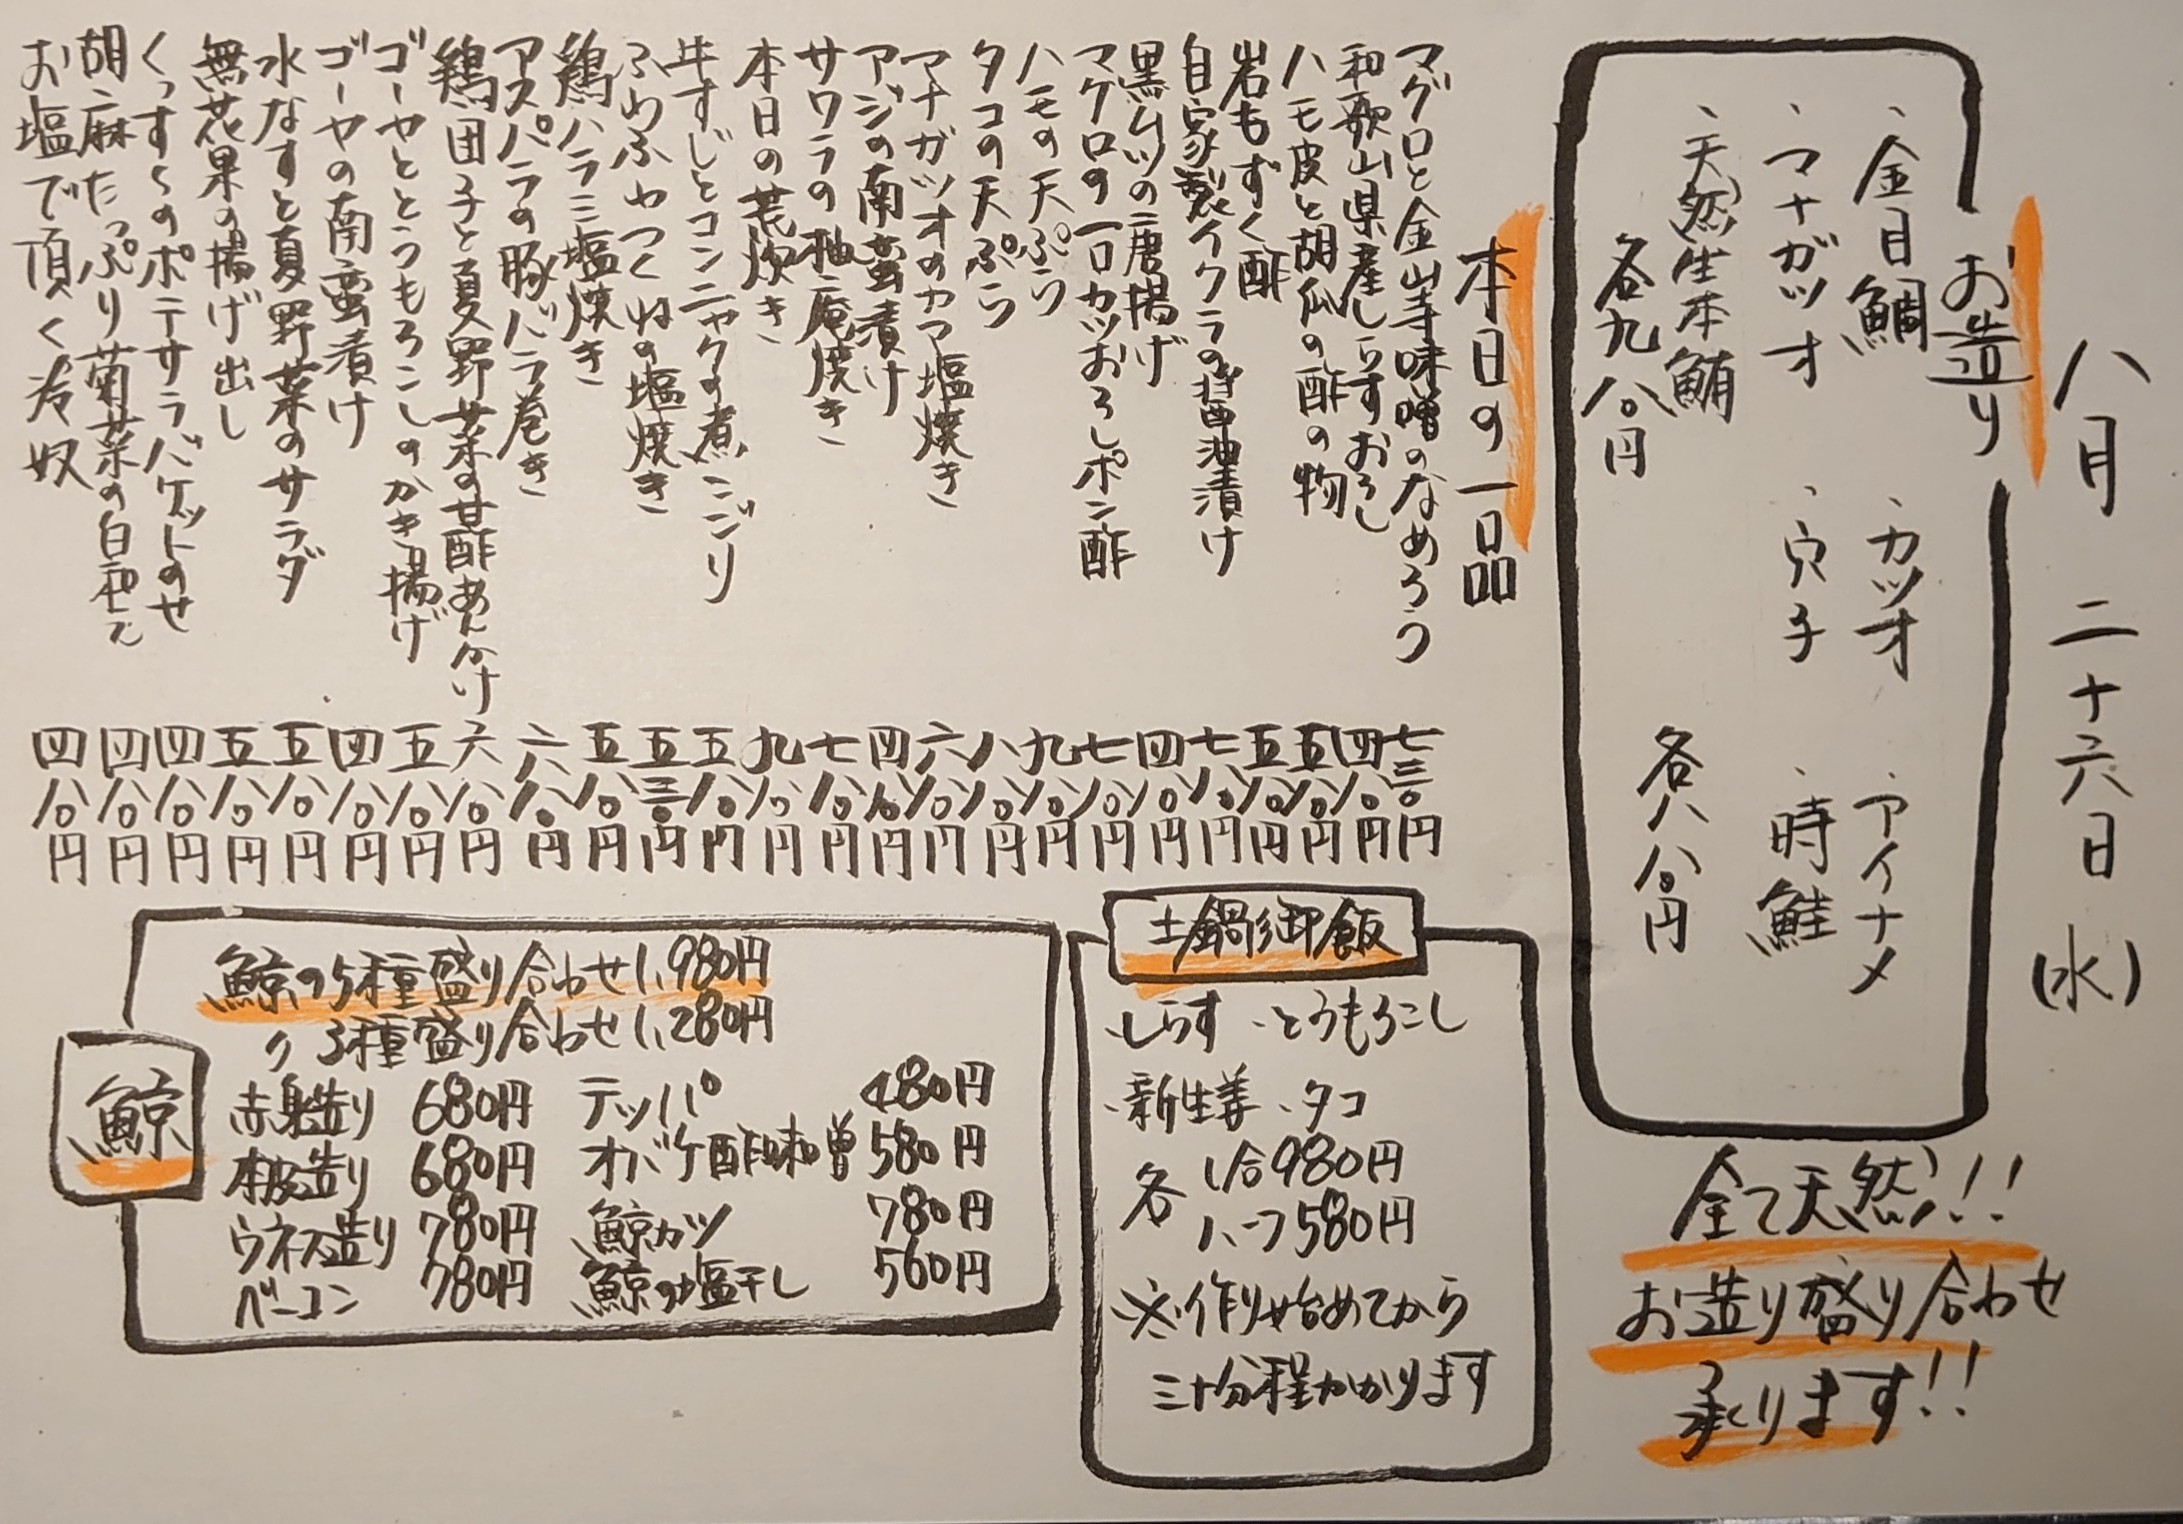 八月二十六日(水)
お造り
、金目鯛 、カツオ 、アイナメ
、マナガツオ 、穴子 、時鮭
、天然生本鮪
各九八〇円 各八八〇円
全て天然!!
お造り盛り合わせ
承ります!!
本日の一品
マグロと金山寺味噌のなめろう 七三〇円
和歌山県産しらすおろし 四八〇円
ハモ皮と胡瓜の酢の物 五八〇円
岩もずく酢 五八〇円
自家製イクラの醤油漬け 七八〇円
黒ムツの唐揚げ 四八〇円
マグロの一口カツおろしポン酢 七八〇円
ハモの天ぷら 九八〇円
タコの天ぷら 八八〇円
マナガツオのカマ塩焼き 六八〇円
アジの南蛮漬け 四八〇円
サワラの柚庵焼き 七八〇円
本日の荒炊き 九八〇円
牛すじとコンニャクの煮こごり 五八〇円
ふわふわつくねの塩焼き 五三〇円
鶏ハラミ塩焼き 五八〇円
アスパラの豚バラ巻き 六八〇円
鶏団子と夏野菜の甘酢あんかけ 六八〇円
ゴーヤととうもろこしのかき揚げ 五八〇円
ゴーヤの南蛮漬け 四八〇円
水なすと夏野菜のサラダ 五八〇円
無花果の揚げ出し 五八〇円
くっすんのポテサラバゲットのせ 四八〇円
胡麻たっぷり菊菜の白和え 四八〇円
お塩で頂く冷奴 四八〇円
土鍋御飯
、しらす 、とうもろこし
、新生姜 、タコ
各 1合980円
ハーフ580円
※作り始めてから
三十分程かかります
鯨
鯨の5種盛り合わせ1,980円
〃 3種盛り合わせ1,280円
赤身造り 680円 テッパ 480円
本皮造り 680円 オバケ酢味噌 580円
ウネス造り 780円 鯨カツ 780円
ベーコン 780円 鯨の塩干し 560円